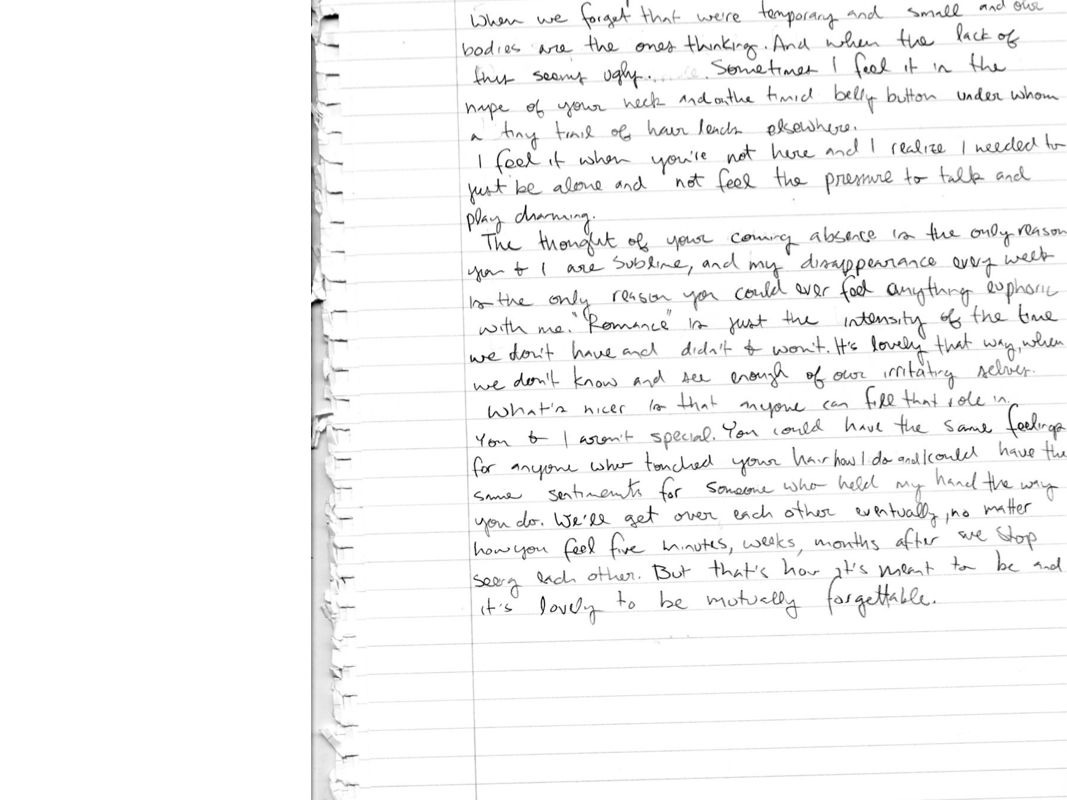 When we forget that we're temporary and small and our
bodies are the ones thinking. And when the lack of
this seems ugly. Sometimes I feel it in the
nape of your neck and on the timid belly button under whom
a tiny trail of hair leads elsewhere.
I feel it when you're not here and I realize I needed to
just be alone and not feel the pressure to talk and
play charming.
The thought of your coming absence is the only reason
you & I are sublime, and my disappearance every week
is the only reason you could ever feel anything euphoric
with me. "Romance" is just the intensity of the time
we don't have and didn't & won't. It's lovely that way, when
we don't know and see enough of our irritating selves.
What's nicer is that anyone can fill that role in.
You & I aren't special. You could have the same feelings
for anyone who touched your hair how I do and I could have the
same sentiments for someone who held my hand the way
you do. We'll get over each other eventually, no matter
how you feel five minutes, weeks, months after we stop
seeing each other. But that's how it's meant to be and
it's lovely to be mutually forgettable.